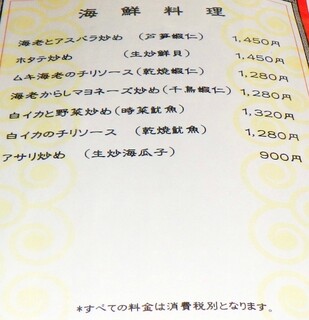 海鮮料理
海老とアスパラ炒め (芦笋蝦仁) 1,450円
ホタテ炒め (生炒鮮貝) 1,450円
ムキ海老のチリソース (乾焼蝦仁) 1,280円
海老からしマヨネーズ炒め (千鳥蝦仁) 1,280円
白イカと野菜炒め (時菜魷魚) 1,320円
白イカのチリソース (乾焼魷魚) 1,280円
アサリ炒め (生炒海瓜子) 900円
*すべての料金は消費税別となります。